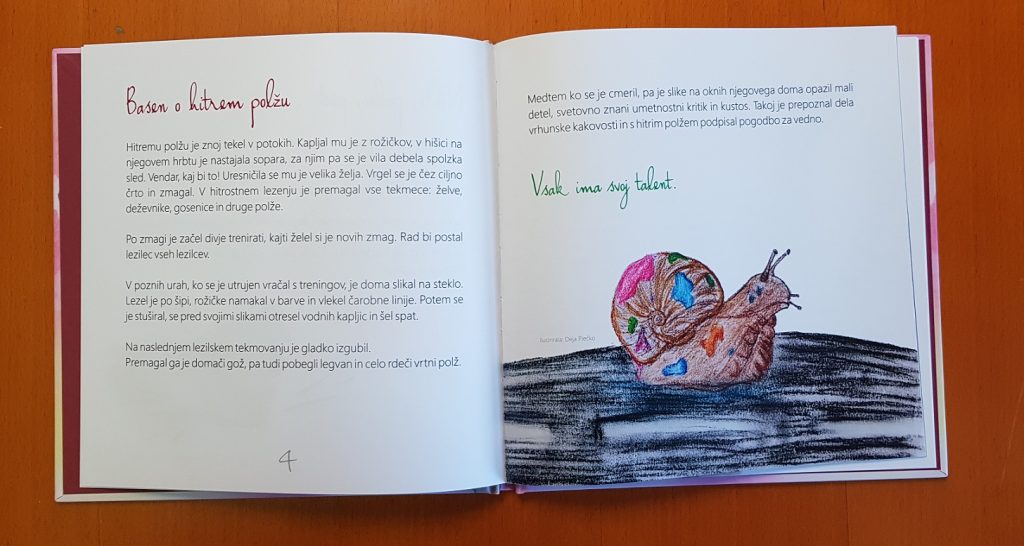 Basen o hitrem polžu
Hitremu polžu je znoj tekel v potokih. Kapljal mu je z rožičkov, v hišici na
njegovem hrbtu je nastajala sopara, za njim pa se je vila debela spolzka
sled. Vendar, kaj bi to! Uresničila se mu je velika želja. Vrgel se je čez ciljno
črto in zmagal. V hitrostnem lezenju je premagal vse tekmece: želve,
deževnike, gosenice in druge polže.
Po zmagi je začel divje trenirati, kajti želel si je novih zmag. Rad bi postal
lezilec vseh lezilcev.
V poznih urah, ko se je utrujen vračal s treningov, je doma slikal na steklo.
Lezel je po šipi, rožičke namakal v barve in vlekel čarobne linije. Potem se
je stuširal, se pred svojimi slikami otresel vodnih kapljic in šel spat.
Na naslednjem lezilskem tekmovanju je gladko izgubil.
Premagal ga je domači gož, pa tudi pobegli legvan in celo rdeči vrtni polž.
4
Medtem ko se je cmeril, pa je slike na oknih njegovega doma opazil mali
detel, svetovno znani umetnostni kritik in kustos. Takoj je prepoznal dela
vrhunske kakovosti in s hitrim polžem podpisal pogodbo za vedno.
Vsak ima svoj talent.
Ilustrirala: Deja Plečko